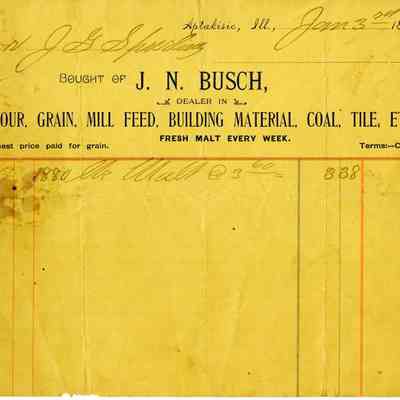 Aptakisic, Ill., Jan 3 18
J G
BOUGHT OF J. N. BUSCH,
DEALER IN
OUR, GRAIN, MILL FEED, BUILDING MATERIAL, COAL, TILE, E
FRESH MALT EVERY WEEK.
est price paid for grain. Terms:—C
1880 Malt @ 3 60 838